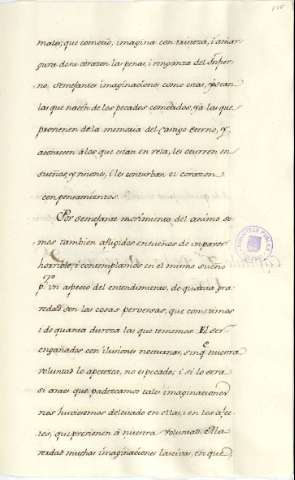 mato; que cometio, imagina con tristeza, i amar
gura de su corazon las penas, i venganza del Infier
no. Semejantes imaginaciones como estas, ya sean
las que nacen de los pecados cometidos, ya las que
provienen de la memoria del castigo eterno, y
acontecen à los que estan en vela, les ocurren en
sueños, y les conturban el corazon
con pensamientos.
Por semejante movimiento del animo so
mos tambien afligidos en sueños de un pavor
horrible, i contemplamos en el mismo sueño
pr. un aspecto del entendimiento, de quanta
son las cosas perversas, que cometimos
i de quanta dureza las que tememos. El ser
engañados con ilusiones nocturnas, sin qe. nuestra
voluntad lo apetezca, no es pecado; i si lo
si antes que padezcamos tales imaginaciones
nos huvieremos deleitado en ellas, i en los afec
tos, que previenen à nuestra voluntad.
muchas imaginaciones lascivas, en que